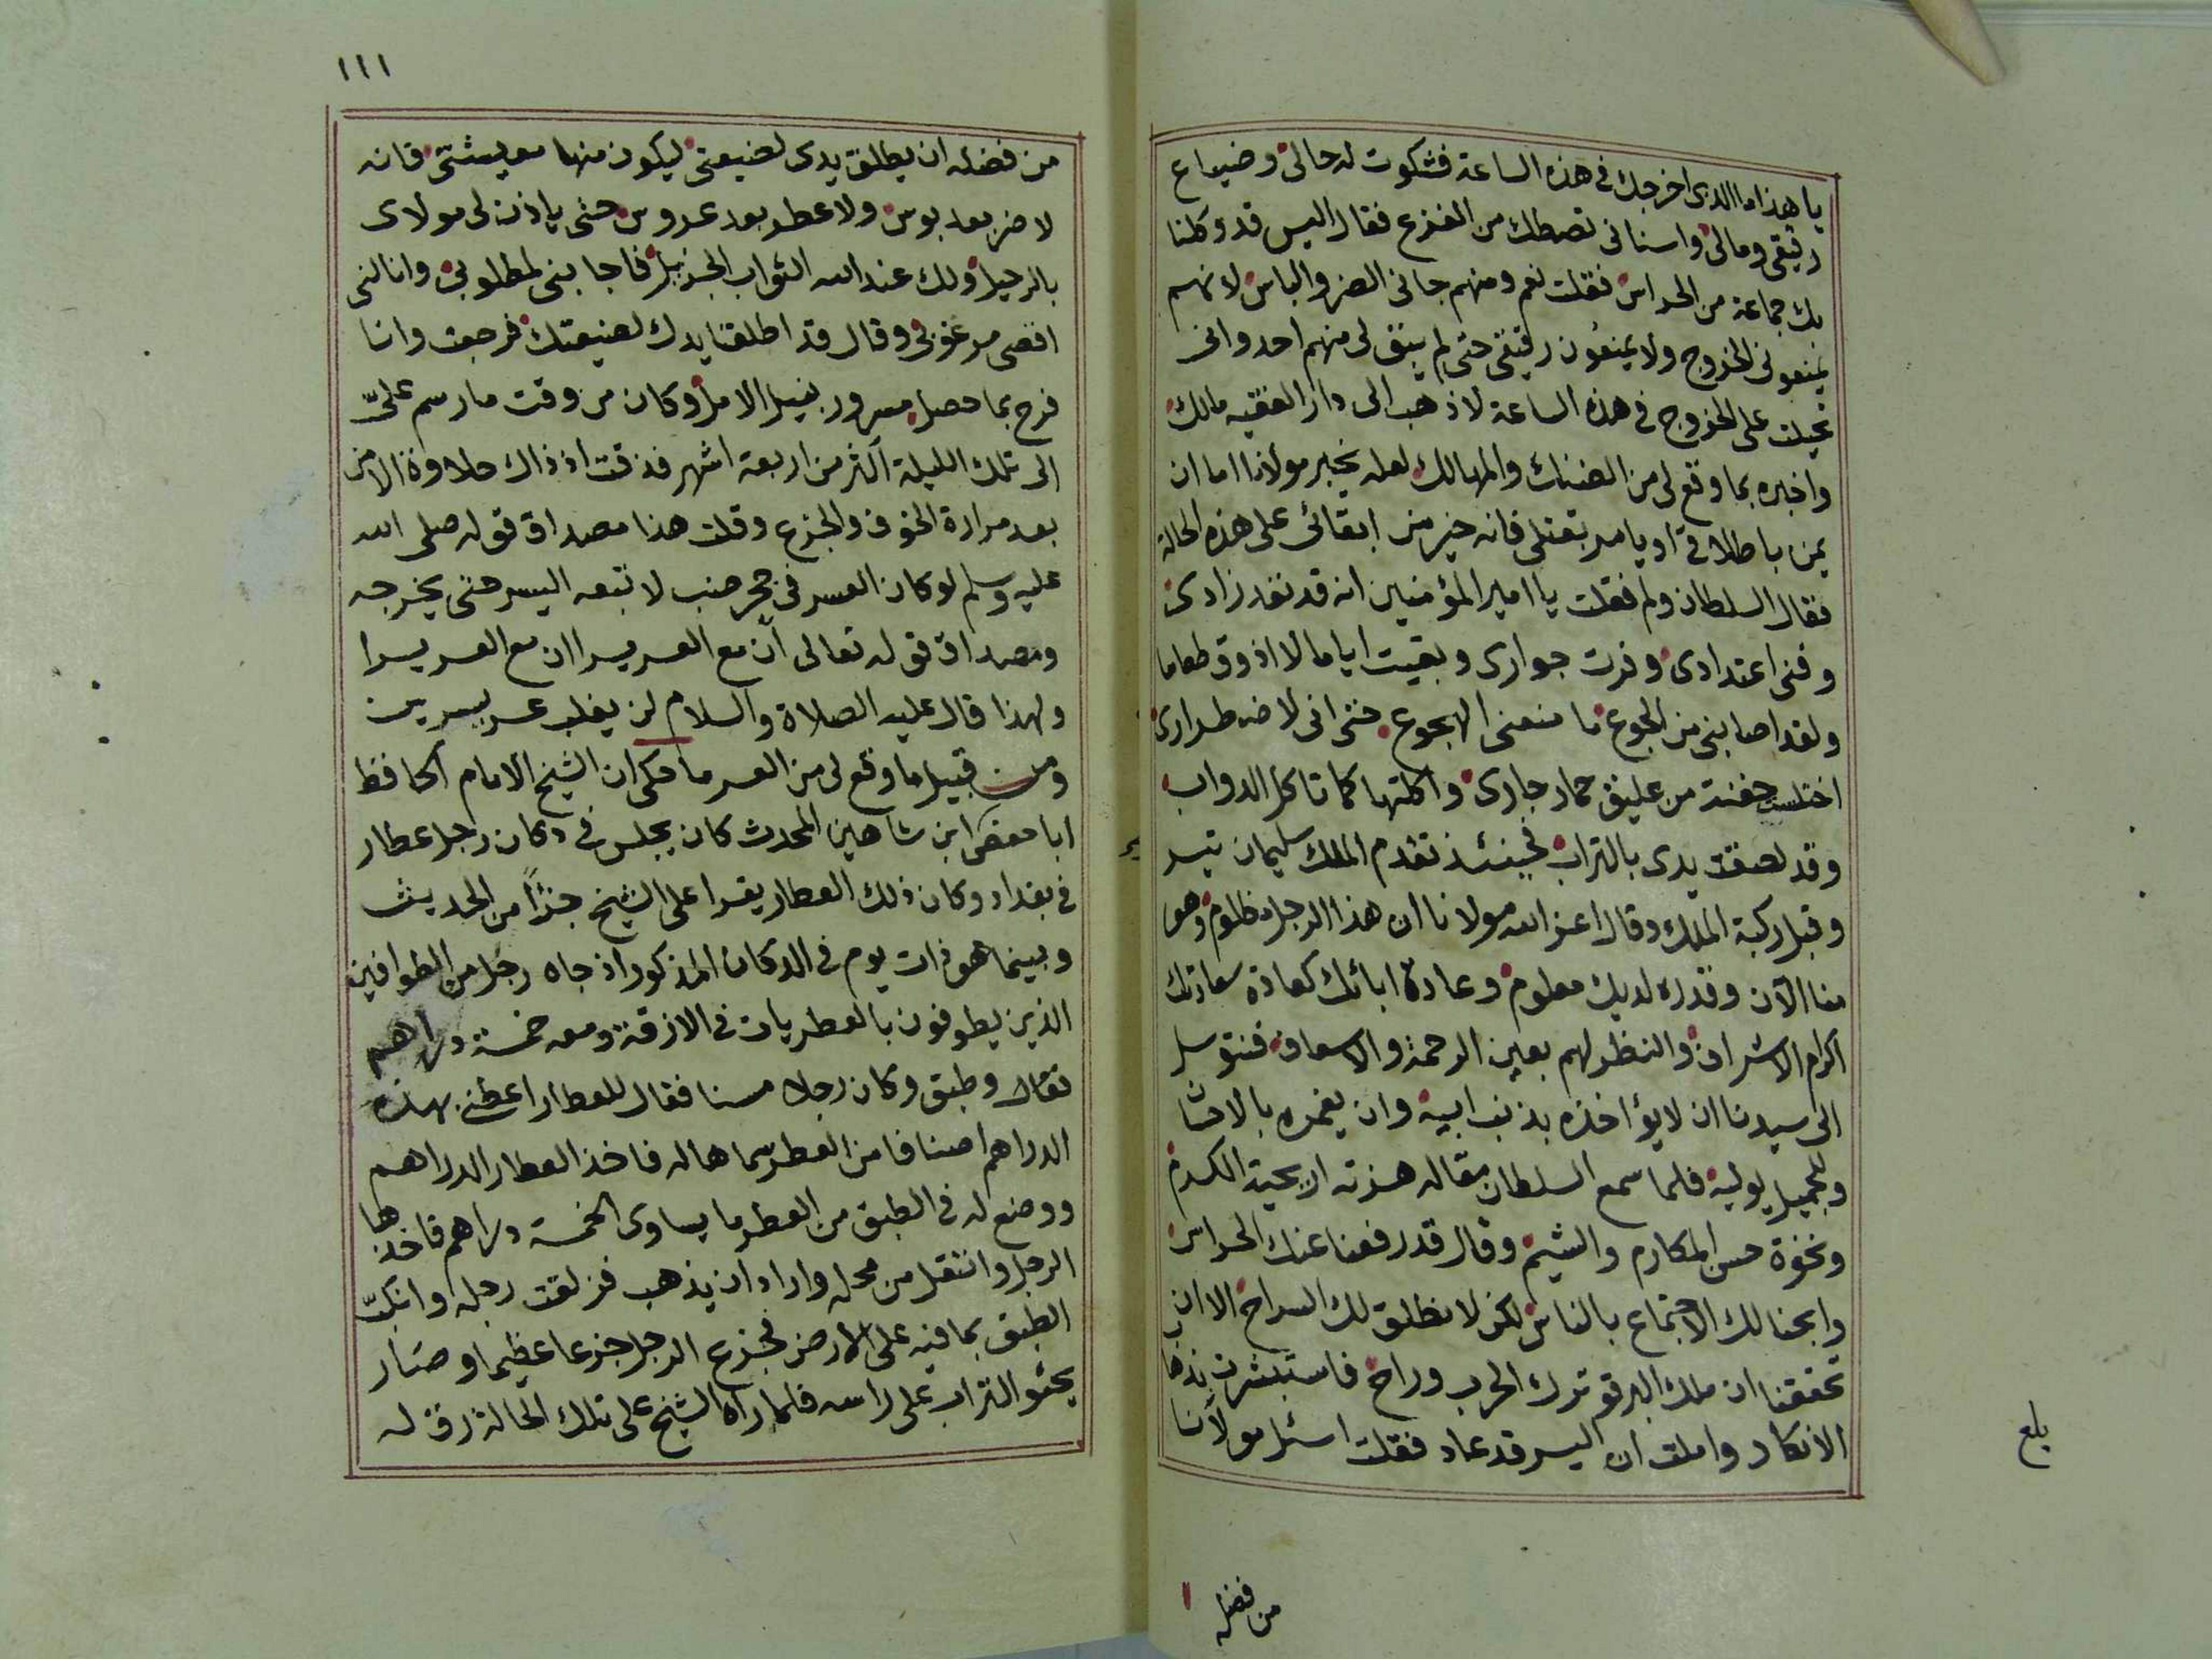 يا هذا ما الذى اخرجك فى هذه الساعة فشكوت له حالى وضياع
رقيقى ومالى واسنانى تصطك من الفزع فقال اليس قد وكلنا
بك جماعة من الحراس فقلت نعم ومنهم جانى الضر والباس لانهم
يمنعونى الخروج ولا يمنعون رقيقى حتى لم يبق لى منهم احد وانى
تحيلت على الخروج فى هذه الساعة لاذهب الى دار الفقيه مالك
واخبره بما وقع لى من الضنك والمهالك لعله يخبر مولانا اما ان
يمن باطلاقى او يامر بقتلى فانه خير من ابقائى على هذه الحالة
فقال السلطان ولم فقلت يا امير المؤمنين انه قد نفد زادى
وفنى اعتدادى وفرت جوارى وبقيت اياما لا اذوق طعاما
ولقد اصابنى من الجوع ما منعنى الهجوع حتى انى لاضطرارى
اختلست حفنة من عليق حمار جارى واكلتها كما تاكل الدواب
وقد لصقت يدى بالتراب فحينئذ تقدم الملك سليمان تيسر
وقبل ركبة الملك وقال اعز الله مولانا ان هذا الرجل مظلوم وهو
منا الآن وقدره لديك معلوم وعادة ابائك كعادة سعادتك
اكرام الاشراف والنظر لهم بعين الرحمة والاسعاف فنتوسل
الى سيدنا ان لا يؤاخذه بذنب ابيه وان يغمره بالاحسا
وللجميل يوليه فلما سمع السلطان مقاله هزته اريحية الكرم
ونخوة حسن المكارم والشيم وقال قد رفعنا عنك الحراس
وابحنا لك الاجتماع بالناس لكن لا نطلق لك السراح الا ان
تحققنا ان ملك البرقو ترك الحرب وراح فاستبشرت بذها
الانكاد واملت ان اليسر قد عاد فقلت اسئل مولانا
من فضله
بلغ
١١١
من فضله ان يطلق يدى لضيعتى ليكون منها معيشتى فانه
لا ضر بعد بوس ولا عطر بعد عروس حتى ياذن لى مولاى
بالرحيل ولك عند الله الثواب الجزيل فاجابنى لمطلوبى وانالنى
اقصى مرغوبى وقال قد اطلقنا يدك لضيعتك فرجعت وانا
فرح بما حصل مسرور بنيل الامل وكان من وقت ما رسم علىّ
الى تلك الليلة اكثر من اربعة اشهر فذقت اذ ذاك حلاوة الامن
بعد مرارة الخوف والجزع وقلت هذا مصداق قوله صلى الله
عليه وسلم لو كان العسر فى جحر ضب لا تبعه اليسر حتى يخرجه
ومصداق قوله تعالى ان مع العسر يسرا ان مع العسر يسرا
ولهذا قال عليه الصلاة والسلام لن يغلب عسر يسرين
ومن قبيل ما وقع لى من العسر ما حكى ان الشيخ الامام الحافظ
ابا حفص ابن شاهين المحدث كان يجلس فى دكان رجل عطار
فى بغداد وكان ذلك العطار يقرا على الشيخ جزءًا من الحديث
وبينما هو ذات يوم فى الدكان المذكور اذ جاه رجل من الطوافين
الذين يطوفون بالعطريات فى الازقة ومعه خمسة دراهم
فقال وطبق وكان رجلا مسنا فقال للعطار اعطنى بهذه
الدراهم اصنافا من العطر سماها له فاخذ العطار الدراهم
ووضع له فى الطبق من العطر ما يساوى الخمسة دراهم فاخذها
الرجل وانتقل من محله واراد ان يذهب فزلقت رجله وانكبّ
الطبق بما فيه على الارض فجزع الرجل جزعا عظيما وصار
يحثو التراب على راسه فلما راه الشيخ على تلك الحالة رق له